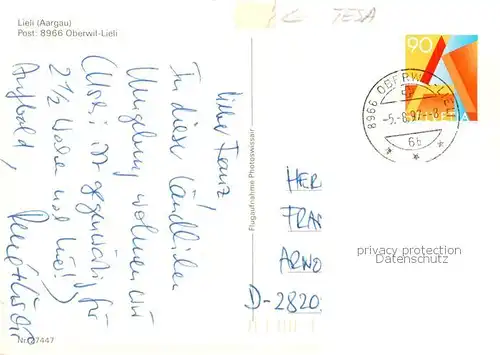 Lieli (Aargau)
Post: 8966 Oberwil-Lieli
TESA
90
8966 OBERWIL-LIELI
-5.-8.97--8
6b
Lieber Franz!
In dieser ländlichen
Umgebung wohnen wir
(Usei ist gegenwärtig für
2 1/2 Wochen
Flugaufnahme Photoswissair
HER
FRA
ARNO
D-2820
privacy protection
Datenschutz
Nr. 27447